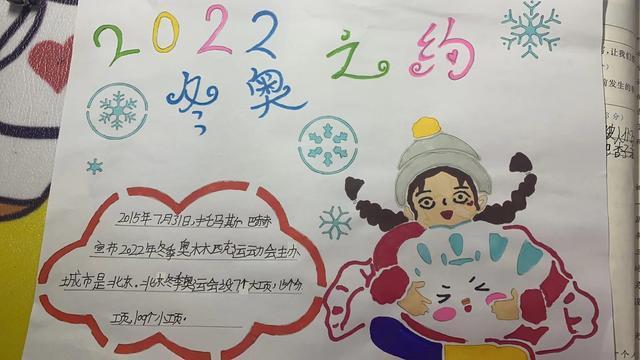 2022之约
冬奥
2015年7月31日,托马斯·巴赫
宣布2022年冬季奥林匹克运动会主办
城市是北京。北京冬季奥运会设7个大项,15个分
项,109个小项。